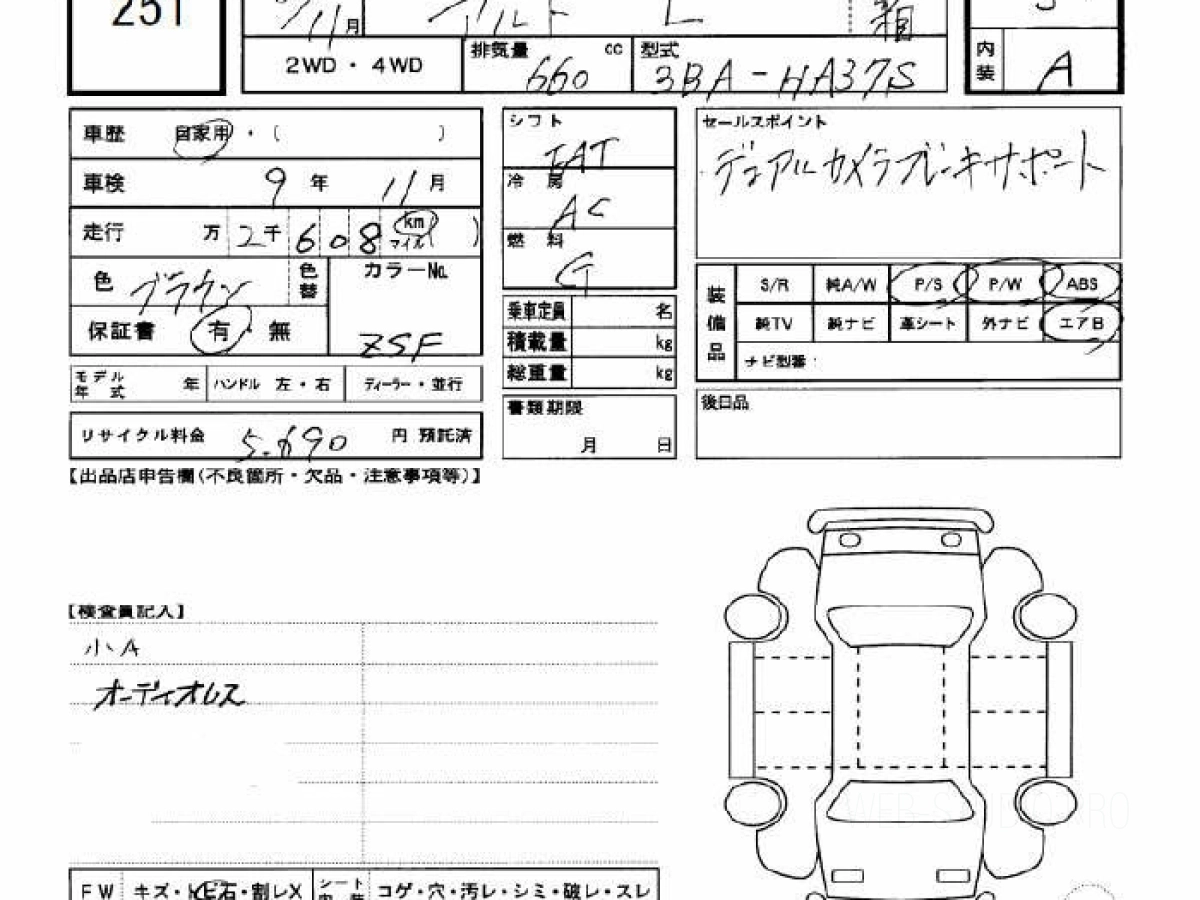 251
11月
アルト L
箱
2WD・4WD
排気量 cc
660
型式
3BA-HA37S
内装 A
車歴 自家用・( )
車検 9年 11月
走行 万 2千 608 km マイル( )
色 ブラウン 色替
カラーNo.
ZSF
保証書 有・無
モデル年式 年 ハンドル 左・右 ディーラー・並行
リサイクル料金 5.690 円 預託済
シフト
冷房
AC
燃料
G
乗車定員 名
積載量 kg
総重量 kg
書類期限
月 日
セールスポイント
デュアルカメラブレーキサポート
装備品
S/R 純A/W P/S P/W ABS
純TV 純ナビ 革シート 外ナビ エアB
ナビ型番:
後日品
【出品店申告欄(不良箇所・欠品・注意事項等)】
【検査員記入】
小A
オーディオレス
WEB-S
FW キズ・トビ石・割レX
シート内装 コゲ・穴・汚レ・シミ・破レ・スレ